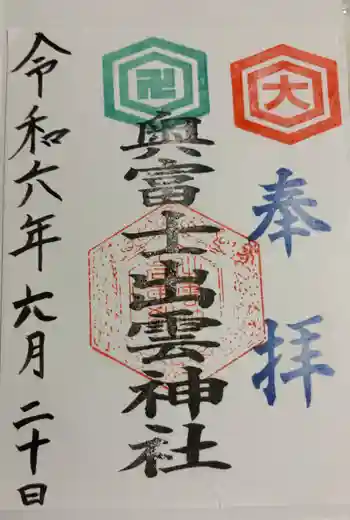 大
奉拝
卍
奥富士出雲神社
令和六年六月二十日